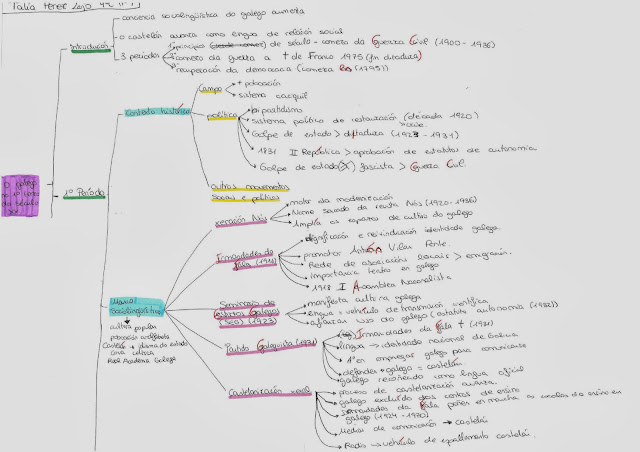 Talía Pérez
Introdución
concencia sociolingüística do galego aumenta
o castelán avanza como lingua de relación social
3 períodos
principio de século - comezo da Guerra Civil (1900 - 1936)
comezo da guerra a † de Franco 1975 (fin ditadura)
recuperación da democracia
O galego
do século
XX
1º Período
Contexto histórico
campo
+ poboación
sistema caciquil
política
bipartidismo
sistema político de restauración (década 1920)
Golpe de estado > ditadura (1923 - 1931)
1931 II República > aprobación de estatutos de autonomía
Golpe de estado fascista > Guerra Civil.
outros movementos
sociais e políticos
Marco
sociolingüístico
cultura popular
poboación analfabeta
Castelán → idioma do estado
Real Academia Galega
Xeración Nós
motor da modernización
Nome sacado da revista Nós (1920 - 1936)
Amplía os espazos de cultivo do galego
Irmandades da
Fala (1916)
dignificación e reivindicación identidade galega.
promotor Antón Vilar Ponte.
Rede de asociacións locais > emigración.
importancia textos en galego
1918 I Asemblea Nacionalista
Seminario de
Estudos Galegos
(1923)
manifesta cultura galega
lingua = vehículo de transmisión científica
afianzar uso do galego (estatutos autonomía (1932))
Partido Galeguista (1931)
Irmandades da Fala † (1931)
lingua → identidade nacional de Galicia
1º en empregar galego para comunicarse
defender galego = castelán
galego recoñecido como lingua oficial
Castelanización social
proceso de castelanización avanza.
galego excluído dos centros de ensino
Irmandades da Fala poñen en marcha as escolas do ensino en
galego (1924 - 1930)
Medios de comunicación → castelán
Radio → vehículo de espallamento castelán.